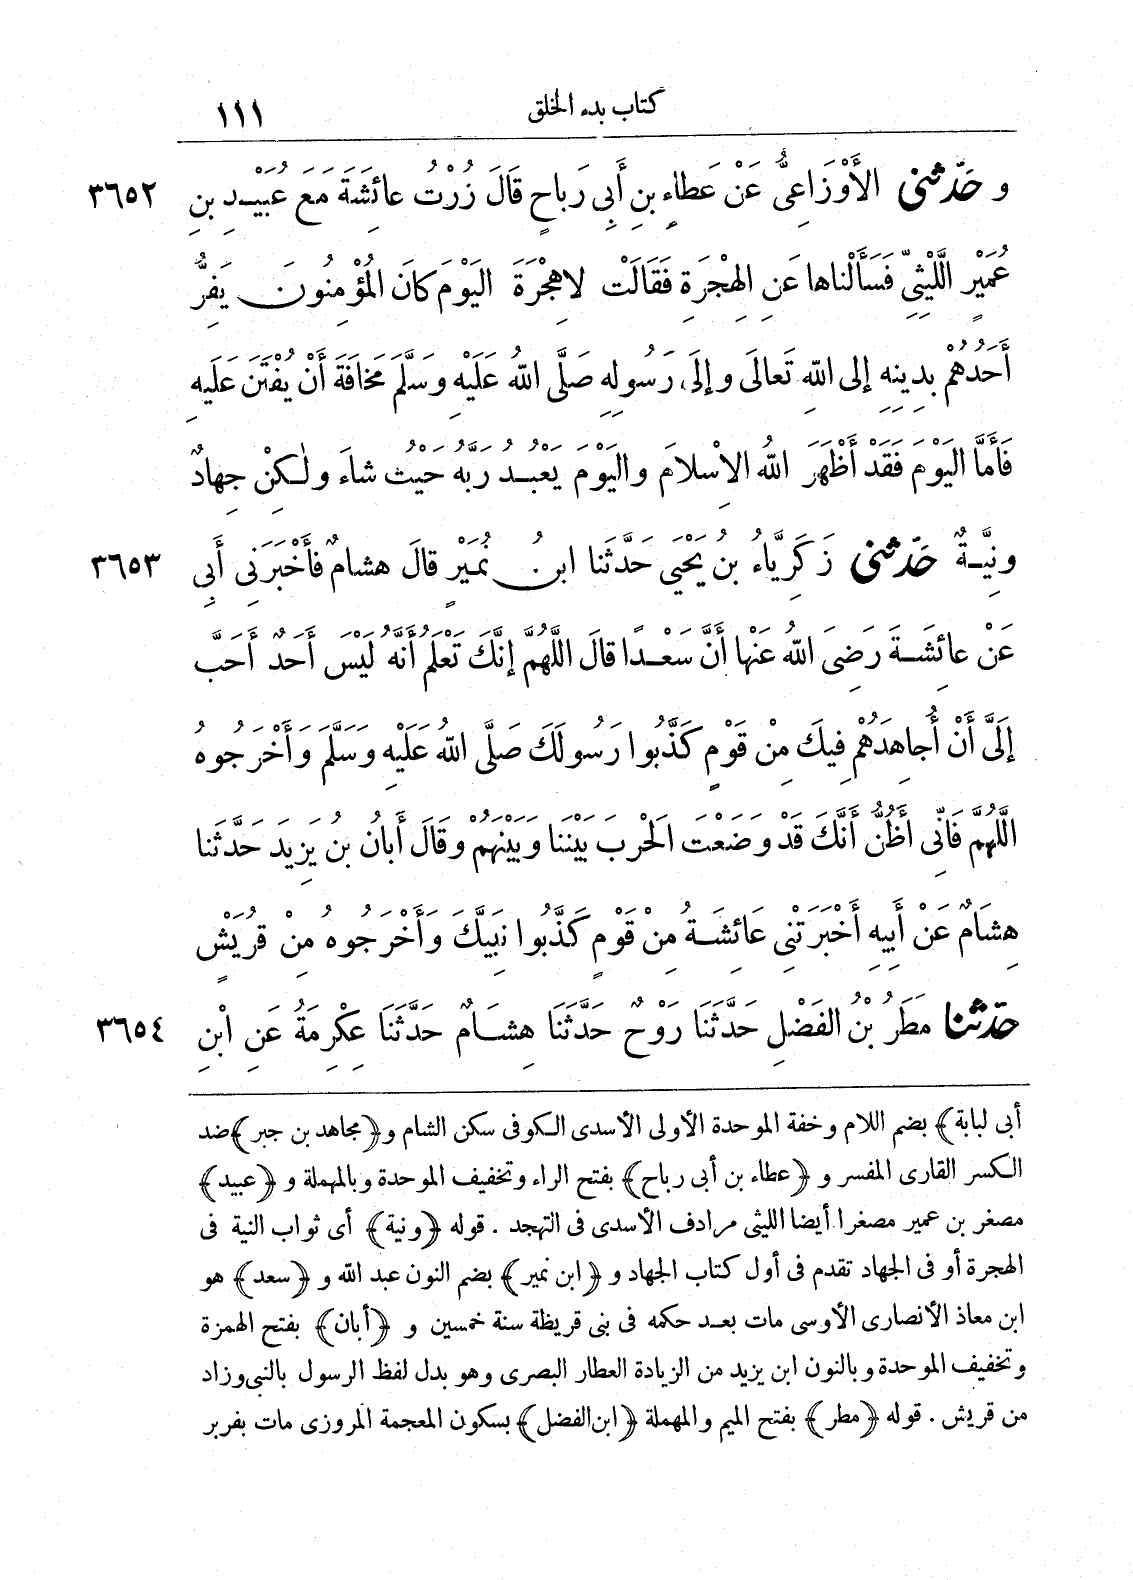 كتاب بدء الخلق ١١١
و حَدَّثنى الأَوْزَاعِىُّ عَنْ عَطاءِ بنِ أَبِى رَباحٍ قَالَ زُرْتُ عائِشَةَ مَعَ عُبَيْـدِ بنِ ٣٦٥٢
عُمَيْرٍ اللَّيْثِىِّ فَسَأَلْناها عَنِ الهِجْرَةِ فَقَالَتْ لا هِجْرَةَ اليَوْمَ كانَ المُؤْمِنُونَ يَفِرُّ
أَحَدُهُمْ بِدِينِهِ إلى اللهِ تَعالَى وإلَى رَسُولِهِ صَلَّى اللهُ عَلَيْهِ وسَلَّمَ مَخافَةَ أَنْ يُفْتَنَ عَلَيهِ
فَأَمَّا اليَوْمَ فَقَدْ أَظْهَرَ اللهُ الإسْلامَ واليَوْمَ يَعْبُـدُ رَبَّهُ حَيْثُ شاءَ ولٰـكِنْ جِهادٌ
ونِيَّـةٌ حَدَّثنى زَكَرِيَّاءُ بنُ يَحْيَى حَدَّثَنا ابنُ نُمَيْرٍ قالَ هشامٌ فأَخْبَرَنِى أَبِى ٣٦٥٣
عَنْ عائِشَـةَ رَضِىَ اللهُ عَنْها أَنَّ سَعْـدًا قالَ اللَّهُمَّ إنَّكَ تَعْلَمُ أَنَّهُ لَيْسَ أَحَدٌ أَحَبَّ
إلَىَّ أَنْ أُجاهِدَهُمْ فِيكَ مِنْ قَوْمٍ كَذَّبُوا رَسُولَكَ صَلَّى اللهُ عَلَيْهِ وَسَلَّمَ وَأَخْرَجُوهُ
اللَّهُمَّ فَانِّى أَظُنُّ أَنَّكَ قَدْ وَضَعْتَ الحَرْبَ بَيْنَنا وَبَيْنَهُمْ وقَالَ أَبانُ بنُ يَزِيدَ حَدَّثَنا
هِشَامٌ عَنْ أَبِيهِ أَخْبَرَتْنِى عَائِشَـةُ مِنْ قَوْمٍ كَذَّبُوا نَبِيَّكَ وَأَخْرَجُوهُ مِنْ قُرَيْشٍ
حَدَّثنا مَطَرُ بْنُ الفَضْلِ حَدَّثَنَا رَوْحٌ حَدَّثَنَا هِشَـامٌ حَدَّثَنَا عِكْرِمَةُ عَنِ ابْنِ ٣٦٥٤
أبى لبابة﴾ بضم اللام وخفة الموحدة الأولى الأسدى الـكوفى سكن الشام و﴿مجاهد بن جبر﴾ ضد
الـكسر القارى المفسر و ﴿عطاء بن أبى رباح﴾ بفتح الراء وتخفيف الموحدة وبالمهملة و ﴿عبيد﴾
مصغر بن عمير مصغرا أيضا الليثى مرادف الأسدى فى التهجد . قوله ﴿ونية﴾ أى ثواب النية فى
الهجرة أو فى الجهاد تقدم فى أول كتاب الجهاد و ﴿ابن نمير﴾ بضم النون عبد الله و ﴿سعد﴾ هو
ابن معاذ الأنصارى الأوسى مات بعـد حكمه فى بنى قريظة سنة خمسين و ﴿أبان﴾ بفتح الهمزة
وتخفيف الموحدة وبالنون ابن يزيد من الزيادة العطار البصرى وهو بدل لفظ الرسول بالنبى وزاد
من قريش . قوله ﴿مطر﴾ بفتح الميم والمهملة ﴿ابن الفضل﴾ بسكون المعجمة المروزى مات بفربر